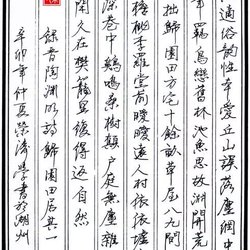 適俗韻性本愛丘山誤落塵網中
年羈鳥戀舊林池魚思故淵開荒
拙歸園田方宅十餘畝草屋八九間
簷桃李羅堂前曖曖遠人村依依墟
深巷中雞鳴桑樹顛戶庭無塵雜
閒久在樊籠裏復得返自然
錄晉陶淵明詩歸園田居其一
辛卯年仲夏榮濤學書於湖州